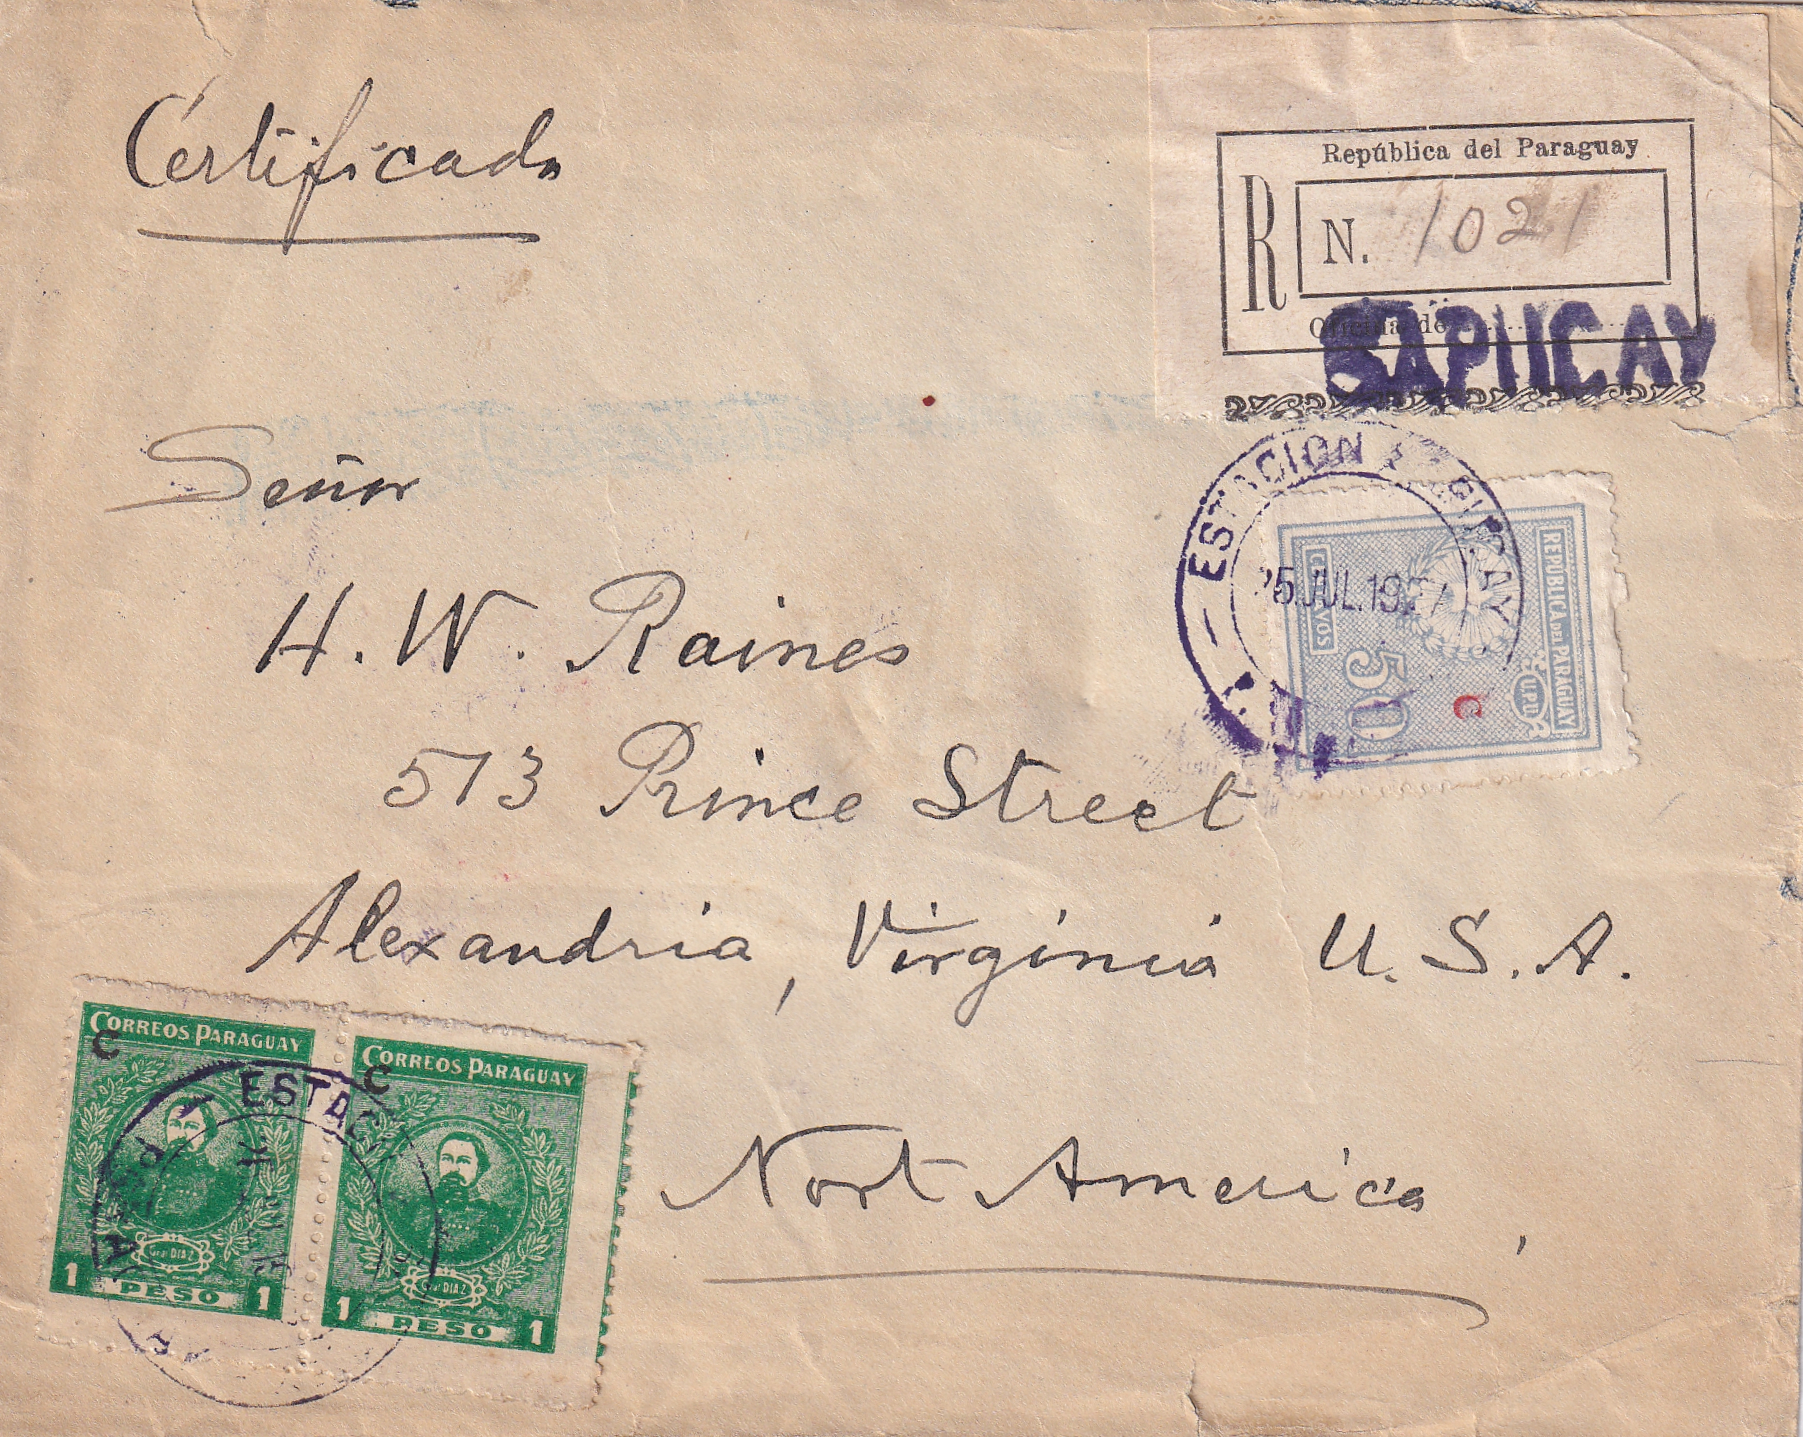 Certificado
República del Paraguay
R
N. 1021
Oficina de
SAPUCAY
Señor
H. W. Raines
513 Prince Street
Alexandria, Virginia U. S. A.
Nort America,
ESTACION
25.JUL.19
REPUBLICA DEL PARAGUAY
U.P.U
C
50
CENTAVOS
CORREOS PARAGUAY
C
Gral DIAZ
1 PESO 1
CORREOS PARAGUAY
C
Gral DIAZ
1 PESO 1
ESTACI